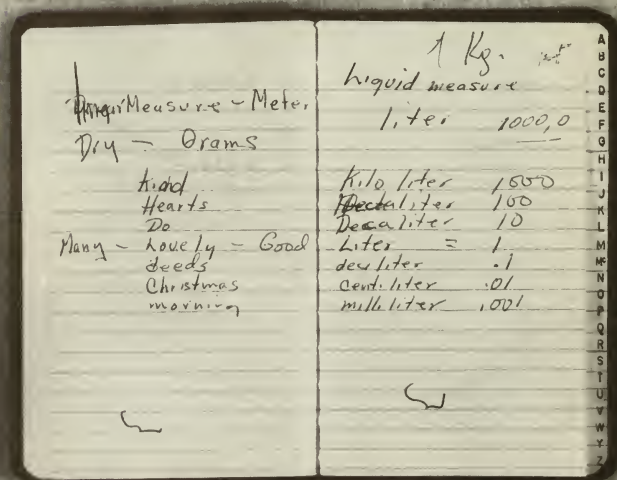 Measure - Meter
Dry - Grams
Kind
Hearts
Do
Many - Lovely - Good
deeds
Christmas
morning
1 Kg.
Liquid measure
liter 1000,0
Kilo liter 1000
Hectaliter 100
Decaliter 10
Liter = 1
deciliter .1
centiliter .01
milliliter .001
A
B
C
D
E
F
G
H
I
J
K
L
M
Mc
N
O
P
Q
R
S
T
U
V
W
Y
Z